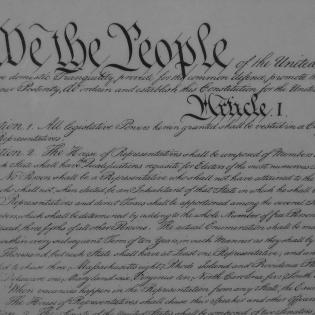 We the People of the United
domestic Tranquility, provide for the common defence, promote
Posterity, do ordain and establish this Constitution for the United
Article. I.
1. All legislative Powers herein granted shall be vested in a
Representatives.
2. The House of Representatives shall be composed of Members
State shall have Qualifications requisite for Electors of the most numerous
No Person shall be a Representative who shall not have attained to the
who shall not, when elected, be an Inhabitant of that State in which he shall
Representatives and direct Taxes shall be apportioned among the several
which shall be determined by adding to the whole Number of free Persons
three fifths of all other Persons. The actual Enumeration shall be
within every subsequent Term of ten Years, in such Manner as they shall by
Thousand, but each State shall have at Least one Representative; and
to chuse three, Massachusetts eight, Rhode Island and Providence
Delaware one, Maryland six, Virginia ten, North Carolina five, South
When vacancies happen in the Representation from any State, the
The House of Representatives shall chuse their Speaker and other
shall be composed of two Senators